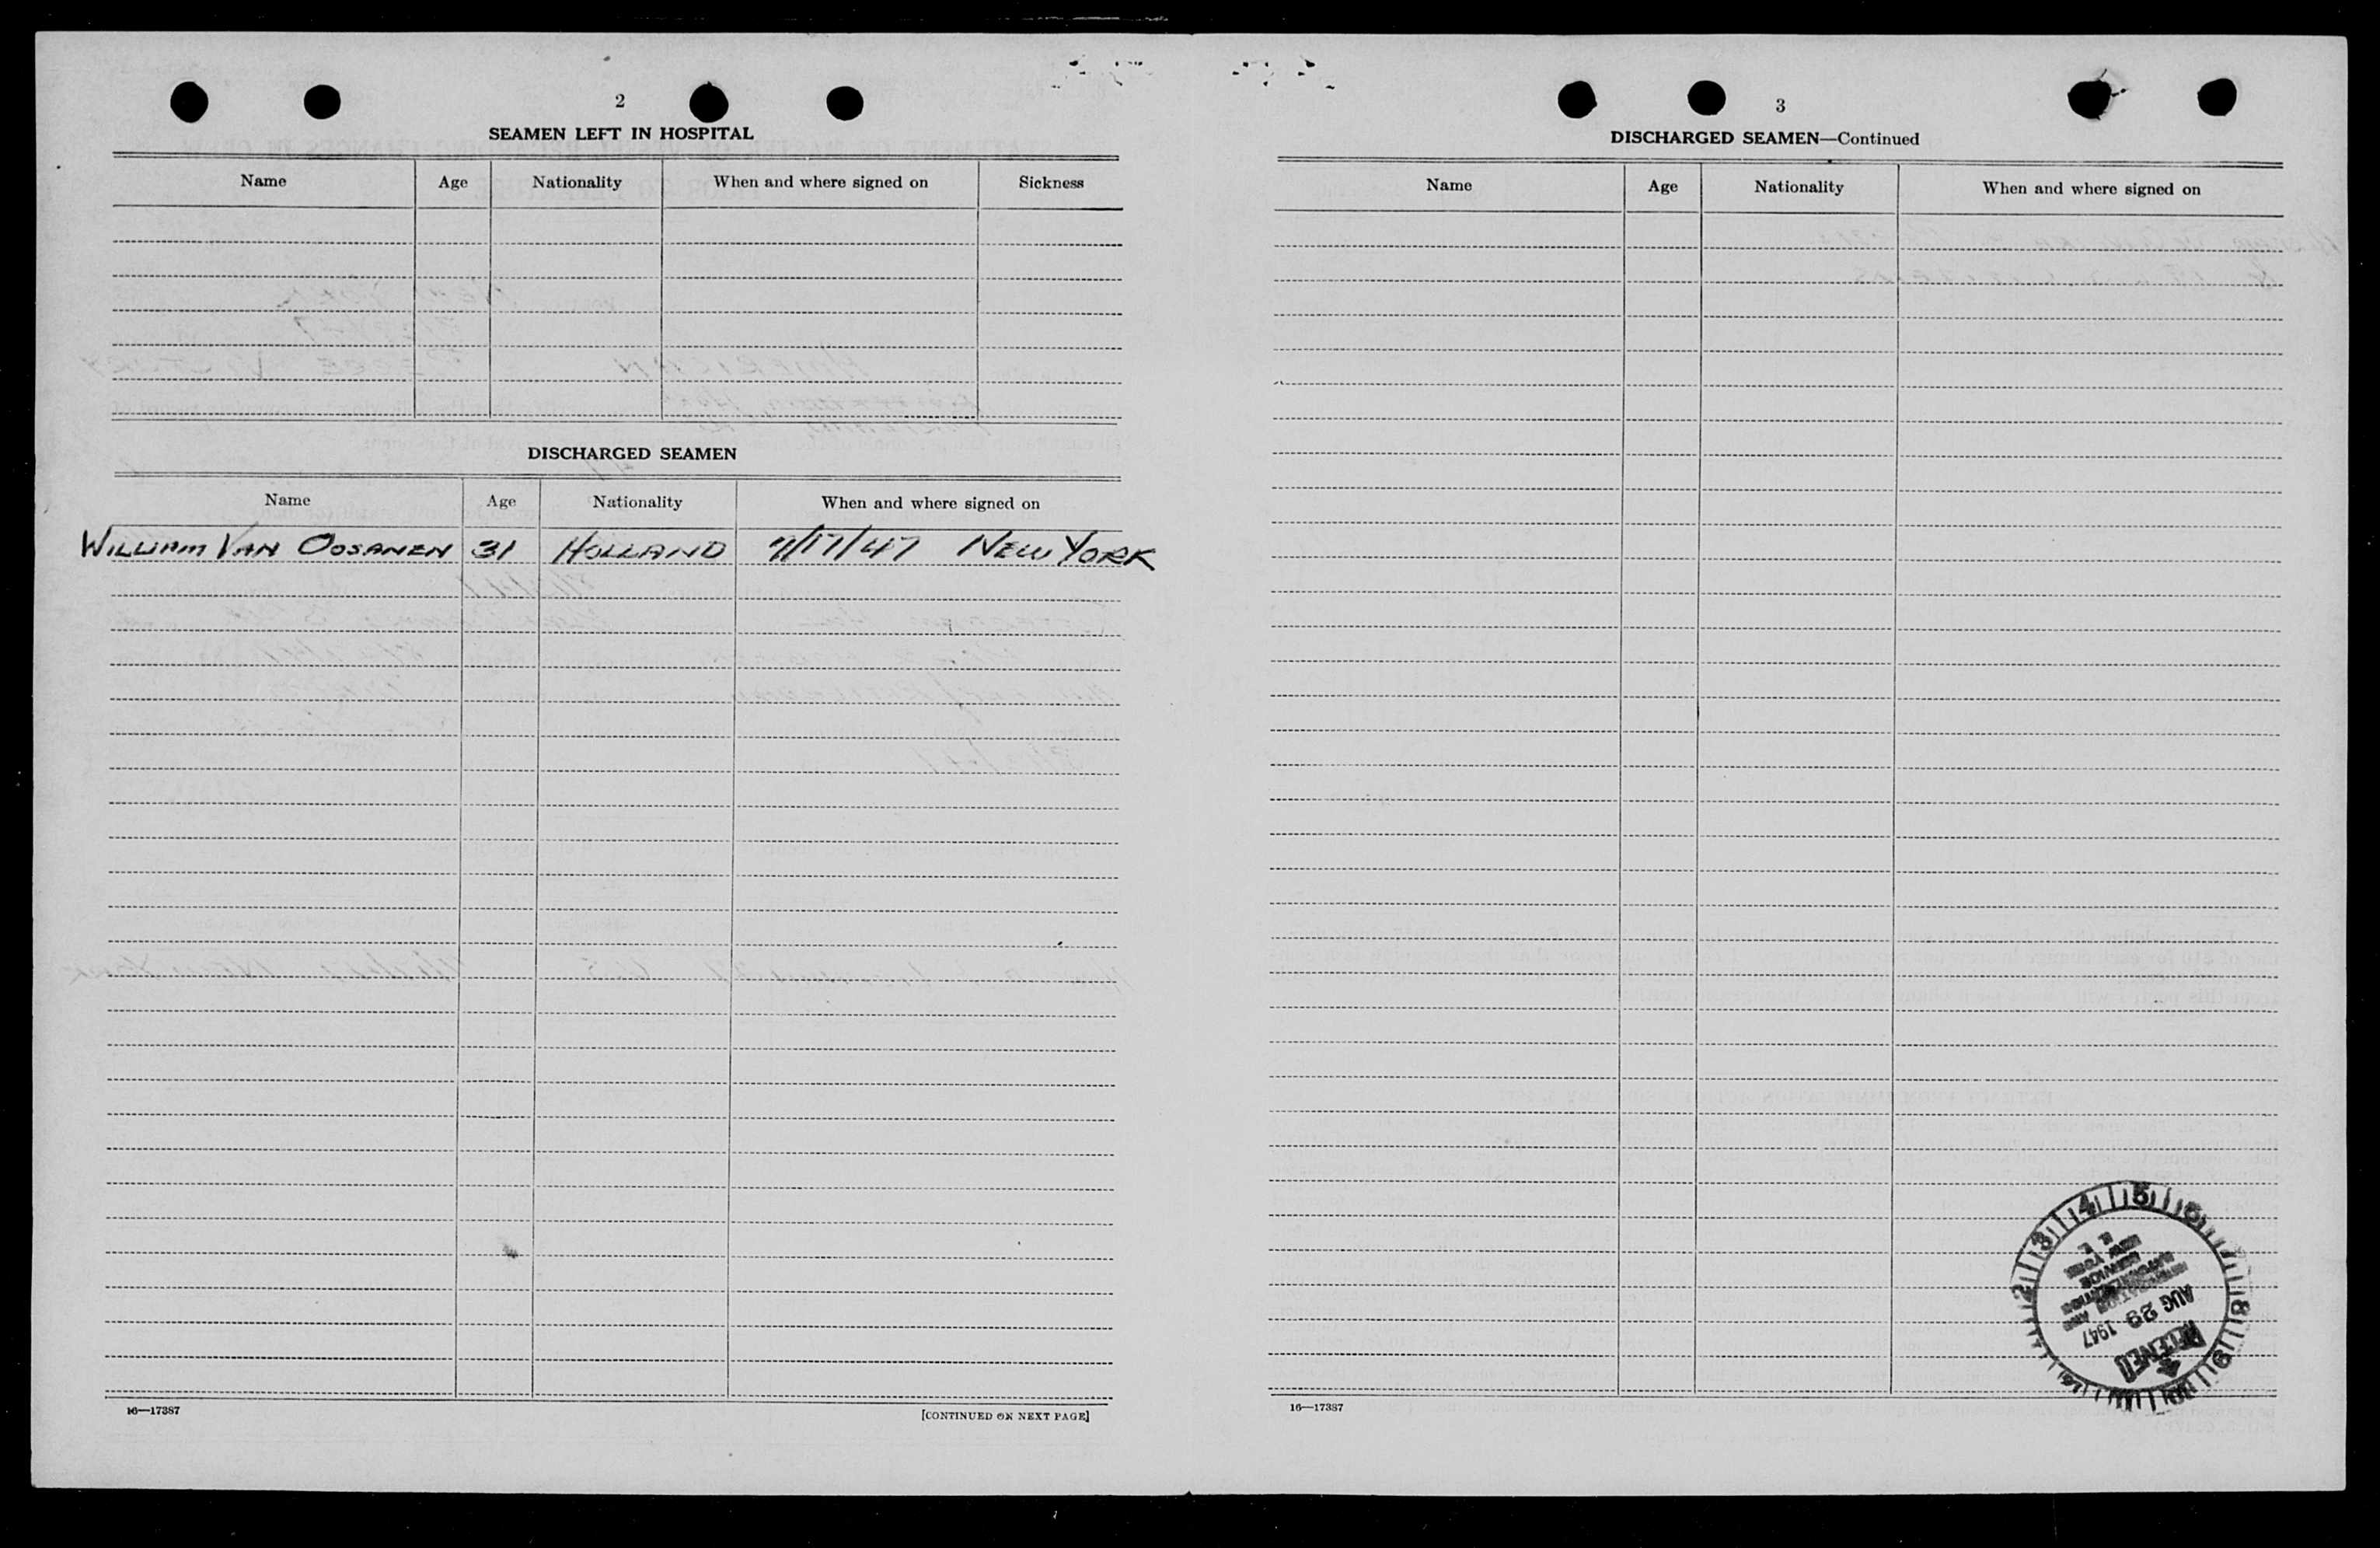 2
SEAMEN LEFT IN HOSPITAL
Name Age Nationality When and where signed on Sickness
DISCHARGED SEAMEN
Name Age Nationality When and where signed on
WILLIAM VAN OOSANEN 31 HOLLAND 7/17/47 NEW YORK
16—17387
[CONTINUED ON NEXT PAGE]
3
DISCHARGED SEAMEN—Continued
Name Age Nationality When and where signed on
2 3 4 5 6 7 8 9
NEW YORK
SERVICE
AUG 29 1947
RECEIVED
16—17387